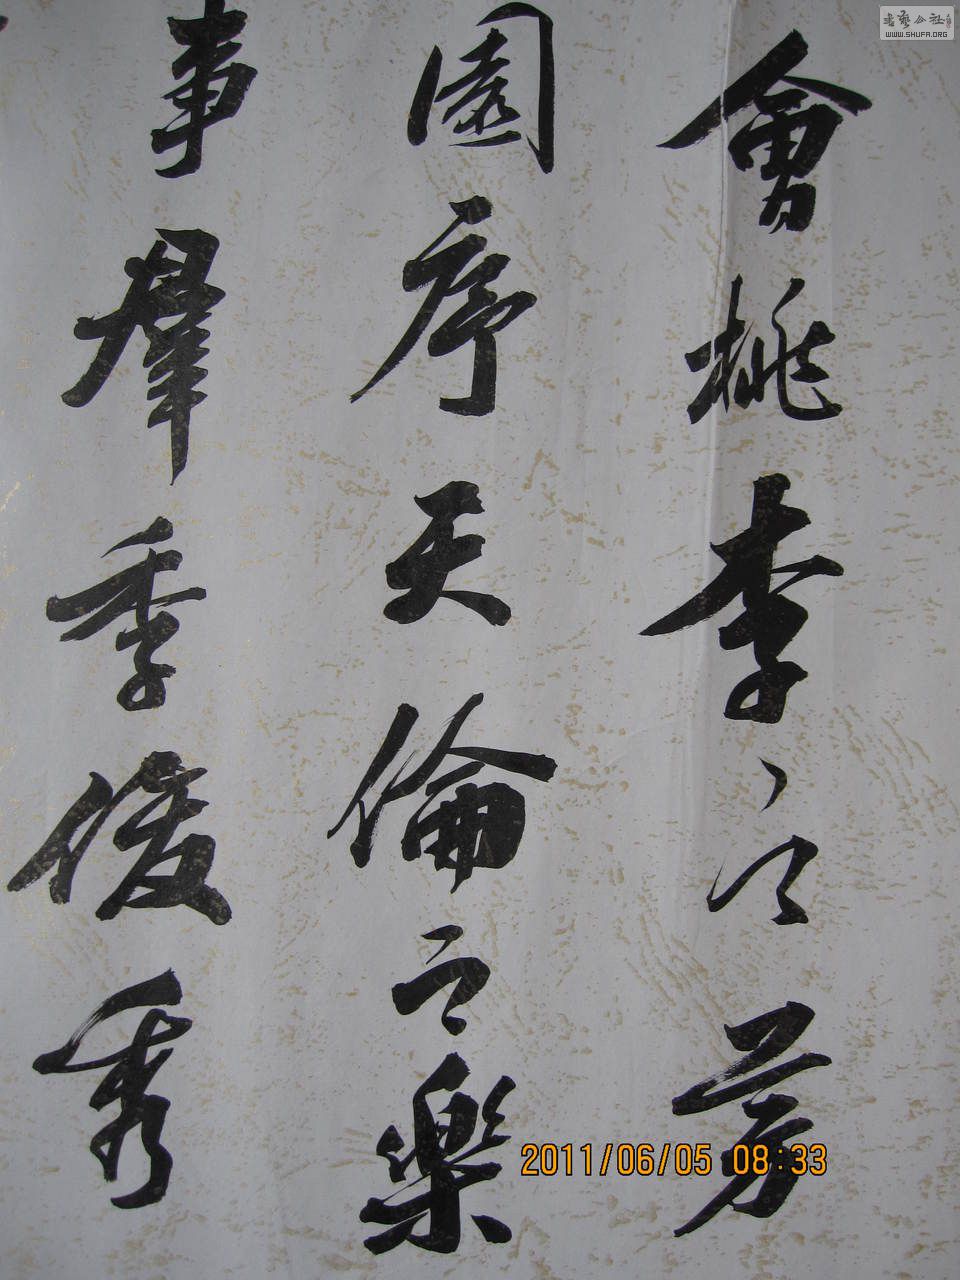 會桃李之芳
園序天倫之樂
事羣季俊秀
2011/06/05 08:33
書藝公社
WWW.SHUFA.ORG